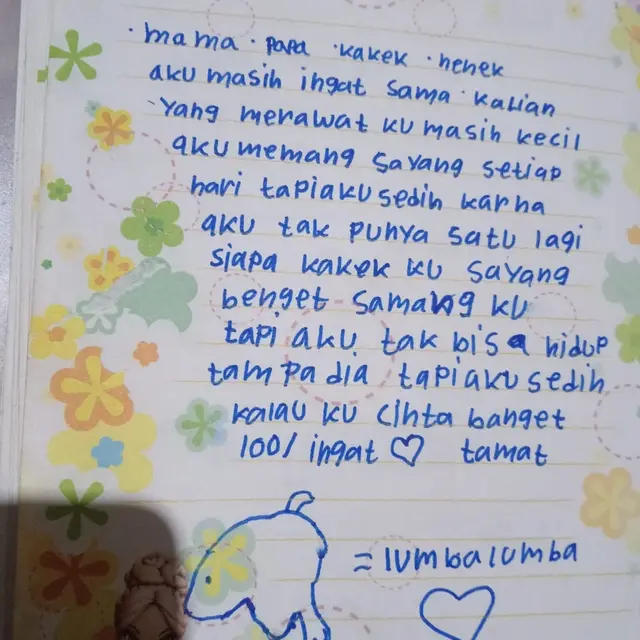 · mama · papa · kakek · nenek
aku masih ingat sama · kalian
· yang merawat ku masih kecil
aku memang sayang setiap
hari tapiaku sedih karna
aku tak punya satu lagi
siapa kakek ku sayang
benget samang ku
tapi aku tak bisa hidup
tampa dia tapiaku sedih
kalau ku cinta banget
100/ ingat ♡ tamat
= lumbalumba